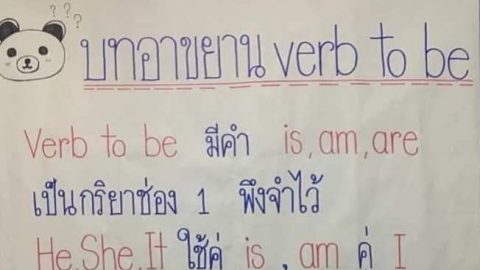 ? ? ?
บทอาขยาน verb to be
Verb to be มีคำ is, am, are
เป็นกริยาช่อง 1 พึงจำไว้
He, She, It ใช้คู่ is , am คู่ I